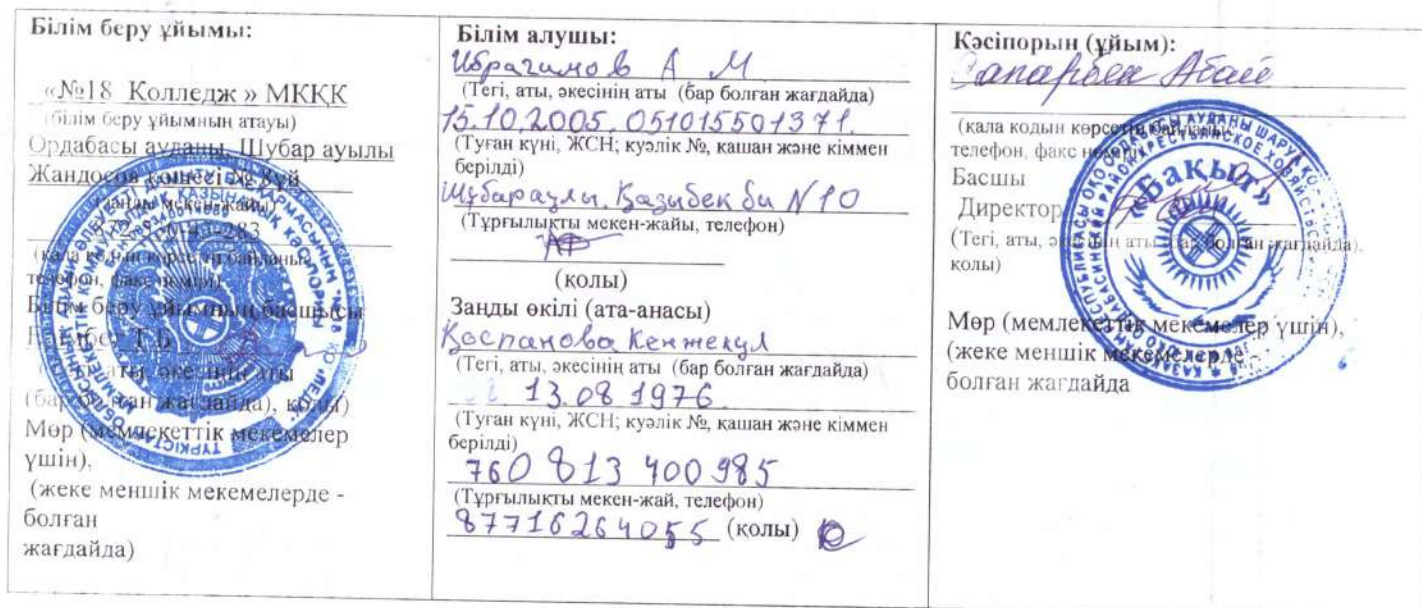 Білім беру ұйымы:
«№18 Колледж » МКҚК
(білім беру ұйымның атауы)
Ордабасы ауданы, Шубар ауылы
Жандосов көшесі № 8үй
(заңды мекен-жайы)
(қала кодын көрсетіп байланыс
телефон, факс номірі)
Білім беру ұйымның басшысы
Т.Б
аты, әкесінің аты
(бар болған жағдайда), қолы)
Мөр (мемлекеттік мекемелер
үшін),
(жеке меншік мекемелерде -
болған
жағдайда)
Білім алушы:
Ибрагимов А М
(Тегі, аты, әкесінің аты (бар болған жағдайда)
15.10.2005. 051015501371.
(Туған күні, ЖСН; куәлік №, қашан және кіммен
берілді)
Шубарауlы. Қазыбек би N10
(Тұрғылықты мекен-жайы, телефон)
(қолы)
Заңды өкілі (ата-анасы)
Қоспанова Кенжекул
(Тегі, аты, әкесінің аты (бар болған жағдайда)
13.08 1976.
(Туған күні, ЖСН; куәлік №, қашан және кіммен
берілді)
760 813 400 985
(Тұрғылықты мекен-жай, телефон)
87716264055 (қолы)
Кәсіпорын (ұйым):
Сапарбек Абай
(қала кодын көрсетіп байланыс
телефон, факс номірі)
Басшы
Директор
(Тегі, аты, әкесінің аты (бар болған жағдайда),
қолы)
«Бақыт»
Мөр (мемлекеттік мекемелер үшін),
(жеке меншік мекемелерде -
болған жағдайда